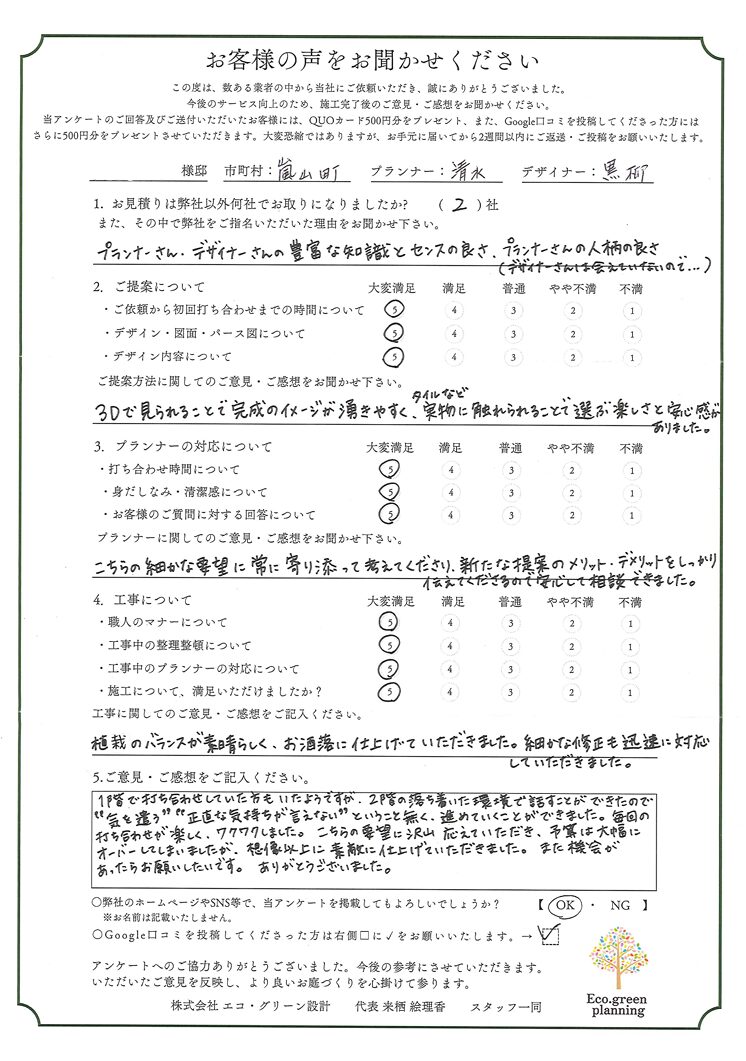 お客様の声をお聞かせください
この度は、数ある業者の中から当社にご依頼いただき、誠にありがとうございました。
今後のサービス向上のため、施工完了後のご意見・ご感想をお聞かせください。
当アンケートのご回答及びご送付いただいたお客様には、QUOカード500円分をプレゼント、また、Google口コミを投稿してくださった方には
さらに500円分をプレゼントさせていただきます。大変恐縮ではありますが、お手元に届いてから2週間以内にご返送・ご投稿をお願いいたします。
様邸 市町村：嵐山町 プランナー：清水 デザイナー：黒柳
1. お見積りは弊社以外何社でお取りになりましたか? （ 2 ）社
また、その中で弊社をご指名いただいた理由をお聞かせ下さい。
プランナーさん・デザイナーさんの豊富な知識とセンスの良さ、プランナーさんの人柄の良さ
（デザイナーさんは会えていないので...）
2. ご提案について 大変満足 満足 普通 やや不満 不満
・ご依頼から初回打ち合わせまでの時間について 5 4 3 2 1
・デザイン・図面・パース図について 5 4 3 2 1
・デザイン内容について 5 4 3 2 1
ご提案方法に関してのご意見・ご感想をお聞かせ下さい。
3Dで見られることで完成のイメージが湧きやすく、タイルなど実物に触れられることで選ぶ楽しさと安心感が
ありました。
3. プランナーの対応について 大変満足 満足 普通 やや不満 不満
・打ち合わせ時間について 5 4 3 2 1
・身だしなみ・清潔感について 5 4 3 2 1
・お客様のご質問に対する回答について 5 4 3 2 1
プランナーに関してのご意見・ご感想をお聞かせ下さい。
こちらの細かな要望に常に寄り添って考えてくださり、新たな提案のメリット・デメリットをしっかり
伝えてくださるので安心して相談できました。
4. 工事について 大変満足 満足 普通 やや不満 不満
・職人のマナーについて 5 4 3 2 1
・工事中の整理整頓について 5 4 3 2 1
・工事中のプランナーの対応について 5 4 3 2 1
・施工について、満足いただけましたか？ 5 4 3 2 1
工事に関してのご意見・ご感想をご記入ください。
植栽のバランスが素晴らしく、お洒落に仕上げていただきました。細かな修正も迅速に対応
していただきました。
5.ご意見・ご感想をご記入ください。
1階で打ち合わせしていた方もいたようですが、2階の落ち着いた環境で話すことができたので
"気を遣う" "正直な気持ちが言えない" ということ無く、進めていくことができました。毎回の
打ち合わせが楽しく、ワクワクしました。こちらの要望に沢山応えていただき、予算は大幅に
オーバーしてしまいましたが、想像以上に素敵に仕上げていただきました。また機会が
あったらお願いしたいです。ありがとうございました。
○弊社のホームページやSNS等で、当アンケートを掲載してもよろしいでしょうか？ 【 OK ・ NG 】
※お名前は記載いたしません。
○Google口コミを投稿してくださった方は右側□に✓をお願いいたします。→ ✓
アンケートへのご協力ありがとうございました。今後の参考にさせていただきます。
いただいたご意見を反映し、より良いお庭づくりを心掛けて参ります。
株式会社 エコ・グリーン設計 代表 来栖 絵理香 スタッフ一同
Eco.green
planning